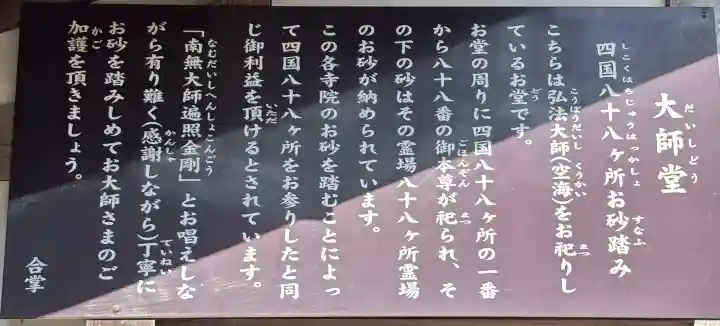 大師堂
四国八十八ヶ所お砂踏み
こちらは弘法大師(空海)をお祀りし
ているお堂です。
お堂の周りに四国八十八ヶ所の一番
から八十八番の御本尊が祀られ、そ
の下の砂はその霊場八十八ヶ所霊場
のお砂が納められています。
この各寺院のお砂を踏むことによっ
て四国八十八ヶ所をお参りしたと同
じ御利益を頂けるとされています。
「南無大師遍照金剛」とお唱えしな
がら有り難く(感謝しながら)丁寧に
お砂を踏みしめてお大師さまのご
加護を頂きましょう。
合掌